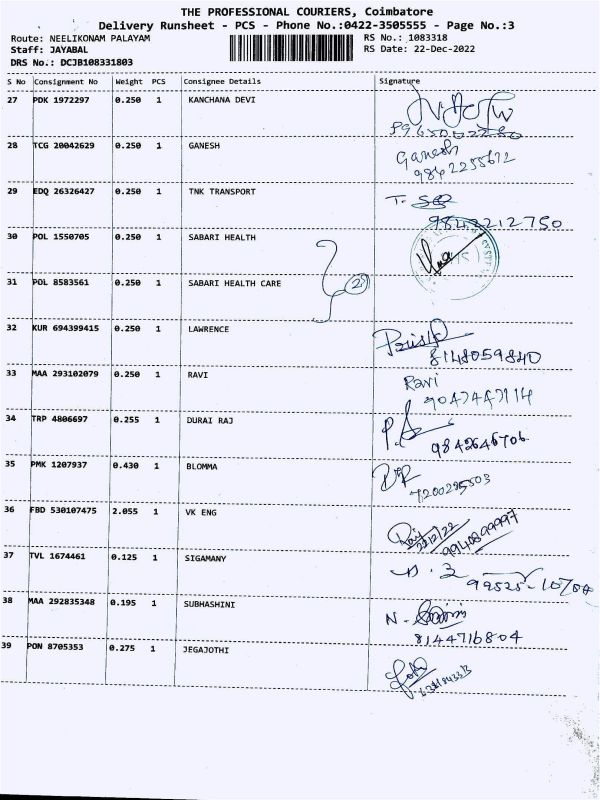 THE PROFESSIONAL COURIERS, Coimbatore
Delivery Runsheet - PCS - Phone No.:0422-3505555 - Page No.:3
Route: NEELIKONAM PALAYAM
RS No.: 1083318
Staff: JAYABAL
RS Date: 22-Dec-2022
DRS No.: DCJB108331803
S No Consignment No Weight PCS Consignee Details Signature
27 PDK 1972297 0.250 1 KANCHANA DEVI
28 TCG 20042629 0.250 1 GANESH Ganesh
9842255672
29 EDQ 26326427 0.250 1 TNK TRANSPORT T.
9843212750
30 POL 1550705 0.250 1 SABARI HEALTH
31 POL 8583561 0.250 1 SABARI HEALTH CARE 2
32 KUR 694399415 0.250 1 LAWRENCE
8148059840
33 MAA 293102079 0.250 1 RAVI Ravi
34 TRP 4806697 0.255 1 DURAI RAJ
9842646706
35 PMK 1207937 0.430 1 BLOMMA
36 FBD 530107475 2.055 1 VK ENG
22/12/22
9940899997
37 TVL 1674461 0.125 1 SIGAMANY
99525-10704
38 MAA 292835348 0.195 1 SUBHASHINI N.
8144716804
39 PON 8705353 0.275 1 JEGAJOTHI